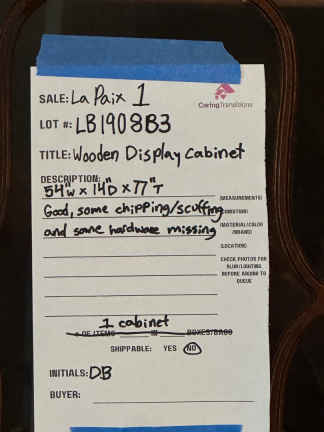 SALE: La Paix 1
CaringTransitions
LOT #: LB1908B3
TITLE: Wooden Display Cabinet
DESCRIPTION:
54"W x 14"D x 77"T
(MEASUREMENTS)
Good, some chipping/scuffing
(CONDITION)
and some hardware missing
(MATERIAL/COLOR
/BRAND)
(LOCATION)
CHECK PHOTOS FOR
BLUR/LIGHTING
BEFORE ADDING TO
QUEUE
1 cabinet
# OF ITEMS IN BOXES/BAGS
SHIPPABLE: YES NO
INITIALS: DB
BUYER: